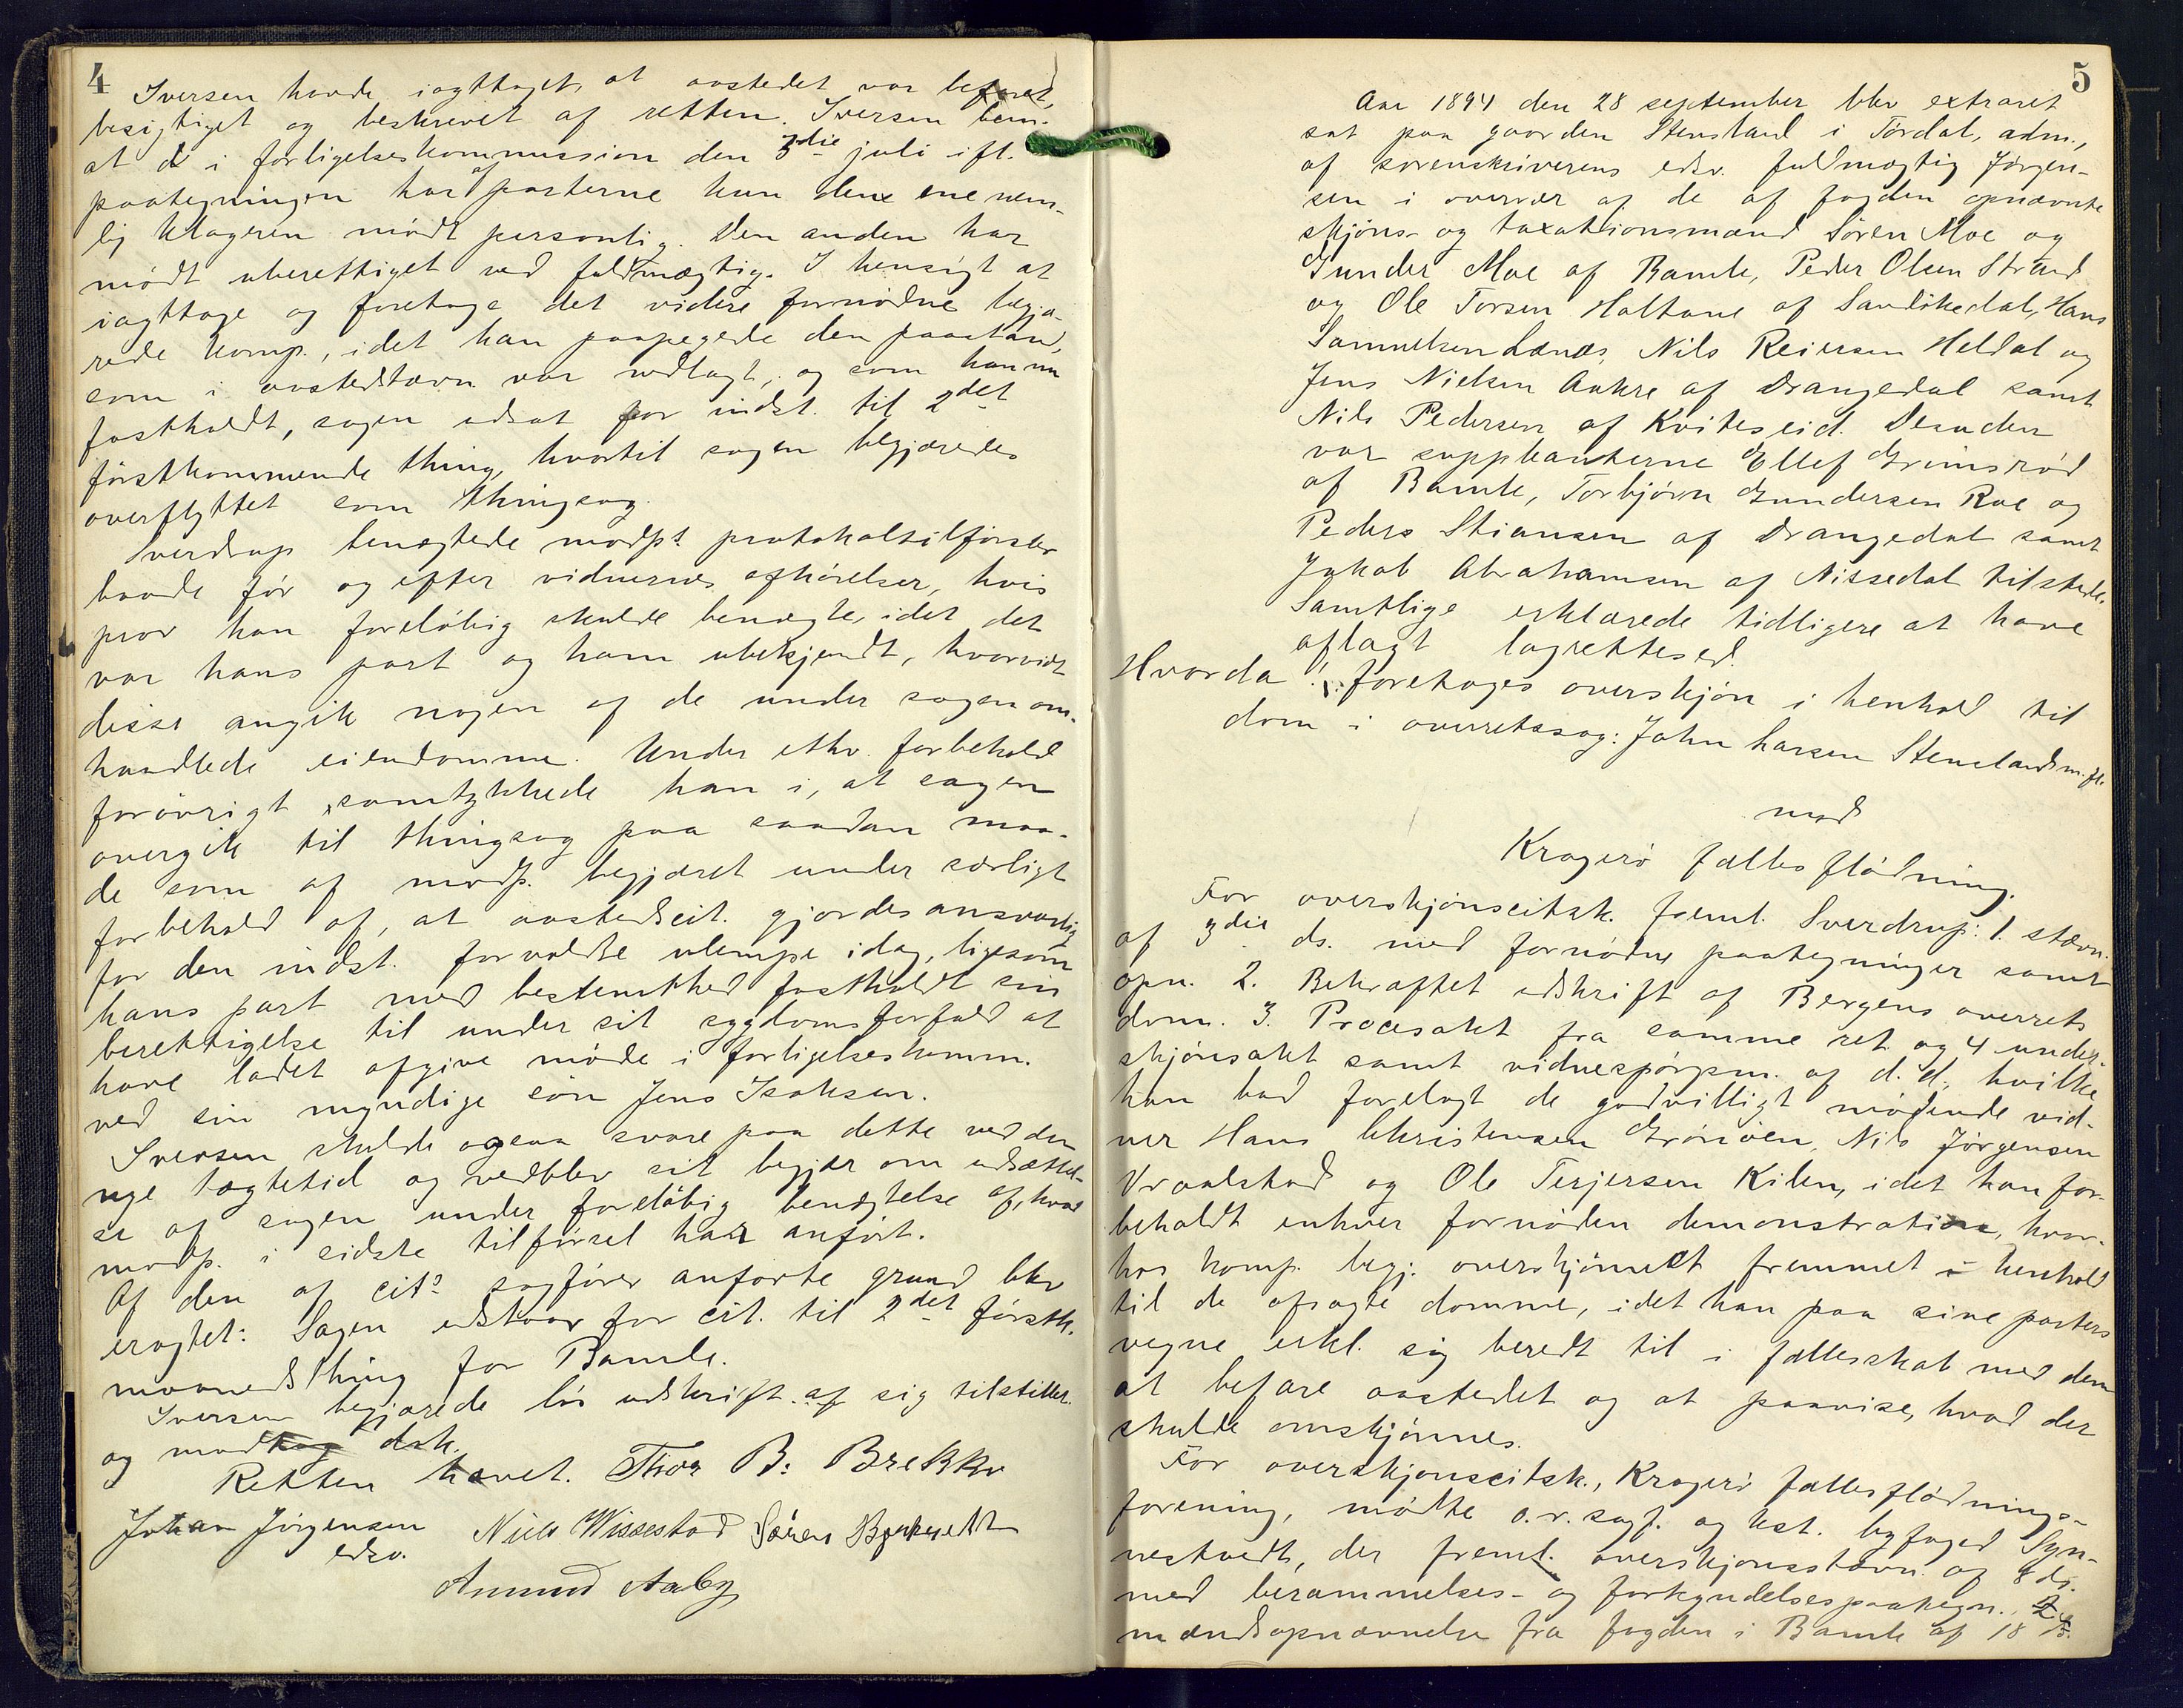 4
Iversen havde iagttaget, at aastedet var befaret,
besigtiget og beskrevet af retten. Iversen bem.
at d i forligelseskommission den 3die juli ifl.
paategningen har af parterne kun den ene nem-
lig klageren mødt personlig. Den anden har
mødt uberettiget ved fuldmægtig. I hensigt at
iagttage og foretage det videre fornødne begjæ-
rede komp., idet han paapegede den paastand,
som i aastedstævn. var nedlagt, og som han nu
fastholdt, sagen udsat for indst. til 2det
førstkommende thing, hvortil sagen begjæredes
overflyttet som thingsag.
Sverdrup benægtede modp.s protokoltilførsler
baade før og efter vidnernes afhørelser, hvis
prov han foreløbig skulde benægte, idet det
var hans part og ham ubekjendt, hvorvidt
disse angik nogen af de under sagen om-
handlede eiendomme. Under ethv. forbehold
forøvrigt samtykkede han i, at sagen
overgik til thingsag paa saadan maa-
de som af modp. begjæret under særligt
forbehold af, at aastedscit. gjordes ansvarlig
for den indst. forvoldte ulempe idag, ligesom
hans part med bestemthed fastholdt sin
berettigelse til under sit sygdomsforfald at
have ladet afgive møde i forligelseskomm.
ved sin myndige søn Jens Isaksen.
Iversen skulde ogsaa svare paa dette ved den
nye tægtetid og vedblev sit begjær om udsættel-
se af sagen under foreløbig benægtelse af, hvad
modp. i sidste tilførsel har anført.
Af den af cit.s sagfører anførte grund blev
eragtet: Sagen udstaar for cit. til 2det førstk.
maanedsthing for Bamle.
Iversen begjærede løs udskrift af sig tilstillet.
og modtag dsk.
Retten hævet. Thor B: Brekke
Johan Jörgensen Niels Wissestad Søren
edsv.
Amund Aaby
5
Aar 1894 den 28 september blev extraret
sat paa gaarden Stensland i Tørdal, adm.,
af sorenskriverens edsv. fuldmægtig Jørgen-
sen i overvær af de af fogden opnævnte
skjøns- og taxationsmænd Søren Moe og
Gunder Moe af Bamle, Peder Olsen Strand
og Ole Torsen Haltane af Sandøkedal, Hans
Samuelsen Lænes, Nils Reiersen Heldal og
Jens Nielsen Aakre af Drangedal samt
Nils Pedersen af Kviteseid. Desuden
var suppleanterne Ellef Grimsrød
af Bamle, Torbjørn Gundersen Roe og
Peders Stiansen af Drangedal samt
Jakob Abrahamsen af Nissedal tilstede.
Samtlige erklærede tidligere at have
aflagt lagrettesed.
Hvorda foretoges overskjøn i henhold til
dom i overretssag: John Larsen Stenslands m. fl.
mod
Kragerø fælles fløtning.
For overskjønscitsk. freml. Sverdrup: 1. stævn.
af 3die ds. med fornødne paategninger samt
opn. 2. Bekræftet udskrift af Bergens overrets
dom. 3. Procesakt fra samme ret og 4 under-
skjønsakt samt vidnespørgsm. af d. d., hvilke
han bad forelagt de godvilligt mødende vid-
ner Hans Christensen Grønøen, Nils Jørgensen
Vraalstad og Ole Terjersen Kilen, idet han for-
beholdt enhver fornøden demonstration, hvor-
hos komp. begj. overskjønnet fremmet i henhold
til de afsagte domme, idet han paa sine parters
vegne erkl. sig beredt til i fællesskab med dem
at befare aastedet og at paavise, hvad der
skulde omskjønnes.
For overskjønscitsk., Kragerø fællesflødnings-
forening, mødte o.r.sagf. og kst. byfoged Syn-
nestvedt, der freml. overskjønsstævn. af 8 ds.
med berammelses- og forkyndelsespaategn., 2
mændsopnævnelse fra fogden i Bamle af 18